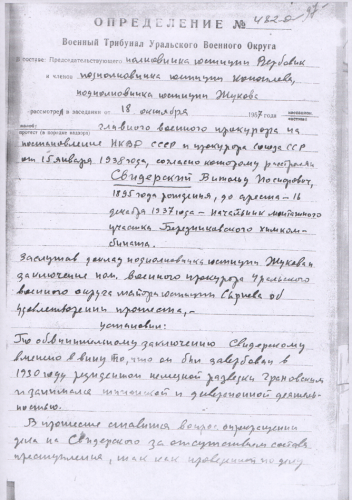 ОПРЕДЕЛЕНИЕ № 4820
Военный Трибунал Уральского Военного Округа
в составе: Председательствующего полковника юстиции Вербовик
и членов подполковника юстиции Коноплева,
подполковника юстиции Жукова
рассмотрел в заседании от 18 октября 1957 года
протест (в порядке надзора) Главного военного прокурора на
постановление НКВД СССР и прокурора Союза ССР
от 15 января 1938 года, согласно которому расстрелян
Свидерский Витольд Иосифович,
1895 года рождения, до ареста – 16
декабря 1937 года – начальник монтажного
участка Березниковского химком-
бината.
Заслушав доклад подполковника юстиции Жукова и
заключение пом. военного прокурора Уральского
военного округа майора юстиции об
удовлетворении протеста, –
установил:
По обвинительному заключению Свидерскому
вменено в вину то, что он был завербован в
1930 году резидентом немецкой разведки Грановским
и занимался шпионской и диверсионной деятель-
ностью.
В протесте ставится вопрос о прекращении
дела на Свидерского за отсутствием состава
преступления, так как проверкой по делу